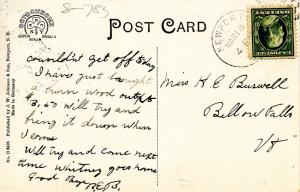 8-783
POST CARD
OCTOCHROME
couldn't get off today
I have just bought
a burn wood outfit
3.50 will try and
bring it down when
I come
Will try and come next
time Whitney goes home
Good Bye R.E.B.
NEWPORT
MAR
Miss H E Buswell
Bellows Falls
Vt
Published by J. W. Johnson & Son, Newport, N. H.
Made in Germany